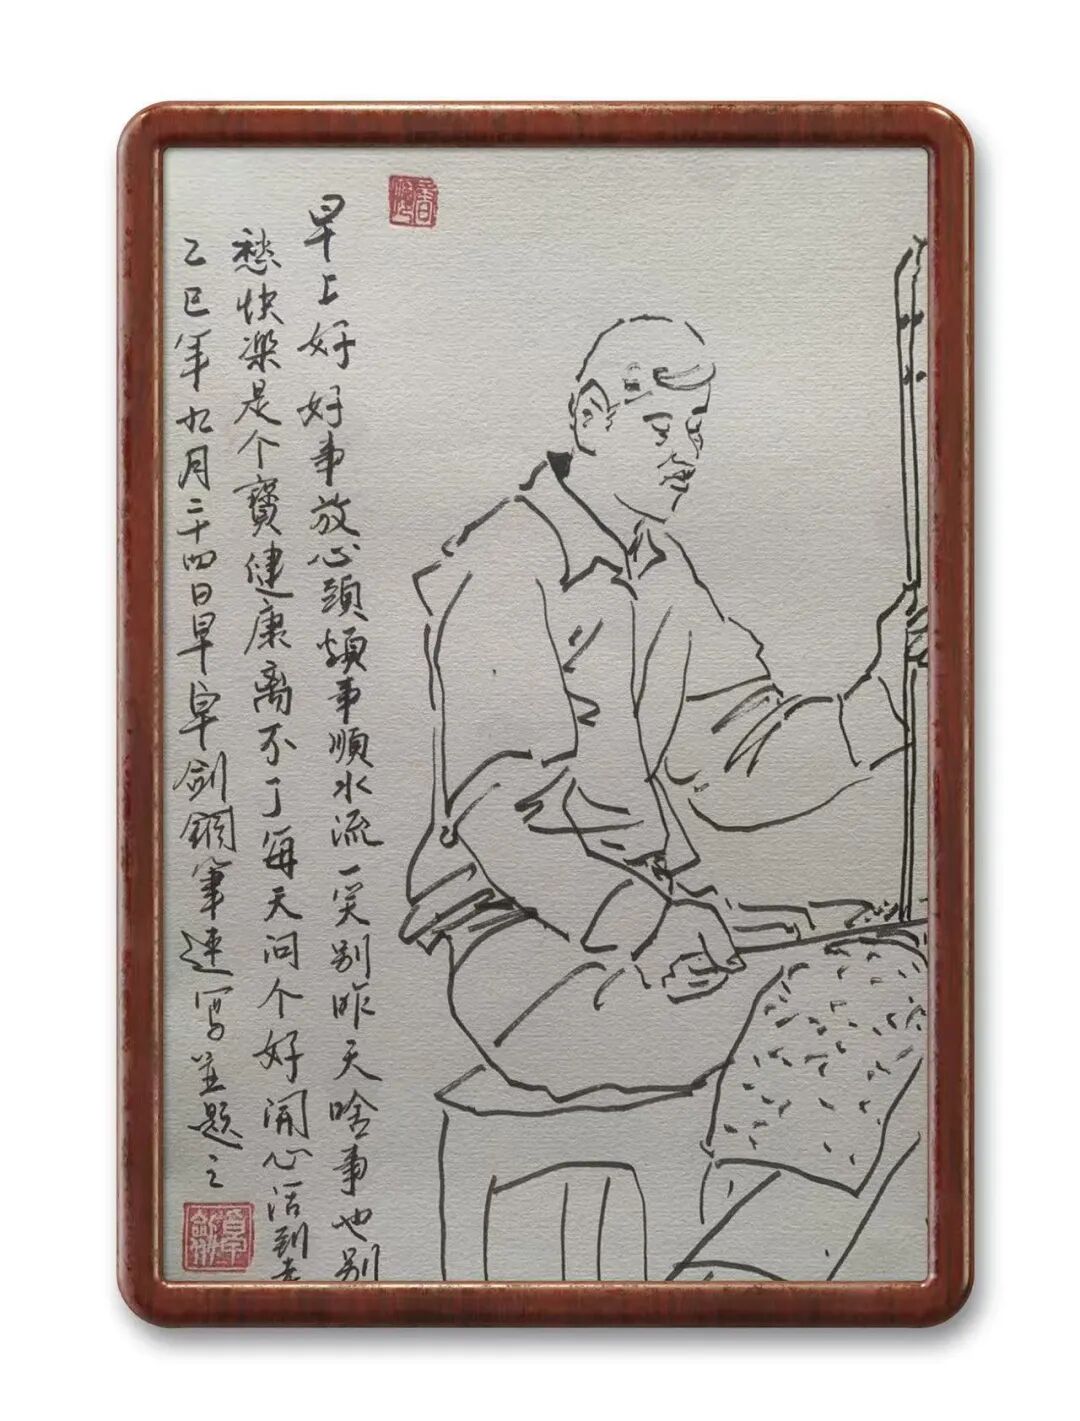 早上好好事放心頭煩事順水流一笑别昨天啥事也别
愁快樂是个寶健康离不了每天问个好開心活到老
乙巳年九月二十四日早剑鋼筆速写並题之